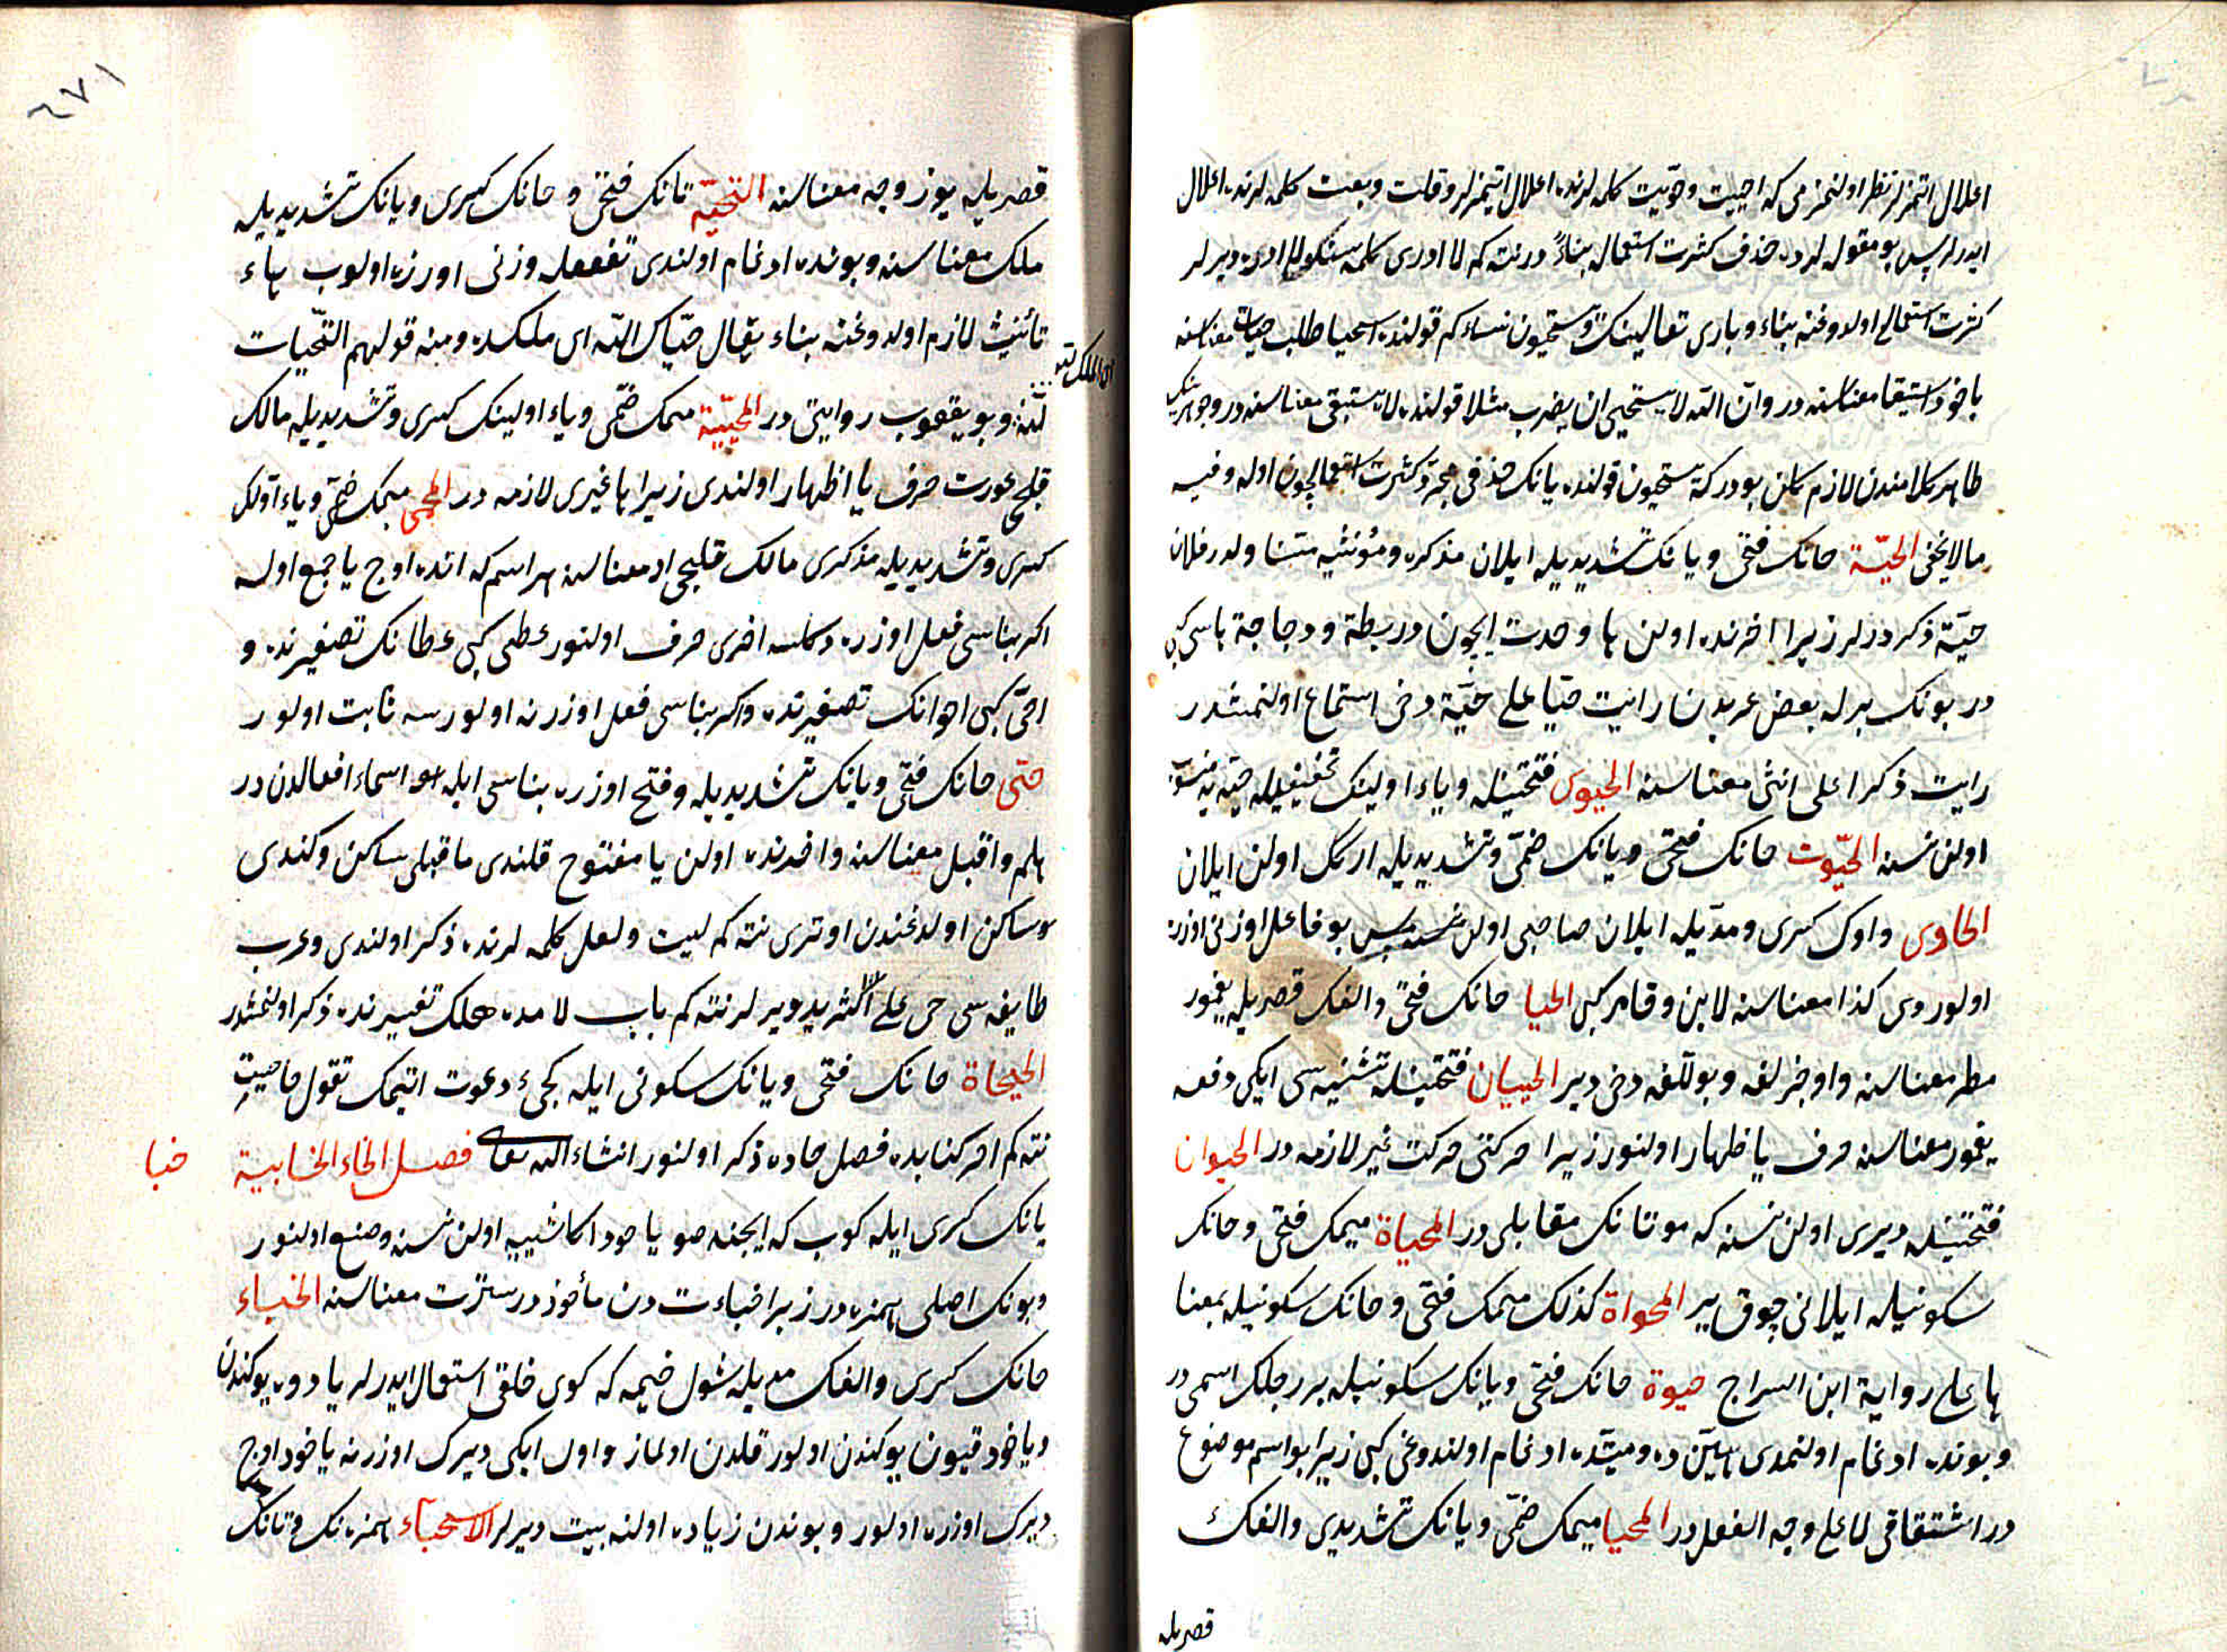 اعلال اتمزلر نظر اولنمزمی که احییت وحوّیت کلمه لرنده اعلال ایتمزلر وقلت وبعت کلمه لرنده اعلال
ایدرلر پس بو مقوله لرده حذف کثرت استعماله بناءً در نته که لا ادری کلمه سنکه لا ادر دیرلر
کثرت استعمالی اولدوغنه بناء وباری تعالینک ویستحیون نساءکم قولنده استحیا طلب حیات معناسنه
یاخود استبقا معناسنه در وانّ الله لا یستحیی ان یضرب مثلا قولنده لا یستبقی معناسنه در وجوهرینک
ظاهر کلامندن لازم کلن بودرکه یستحیون قولنده یانک حذفی مجرّد کثرت استعمالیچون اوله وفیه
مالایخفی الحیّة حانک فتحی ویانک تشدیدیله ایلان مذکره ومؤنثه متناولدر فلان
حیّة ذکر درلر زیرا اخرنده اولن ها وحدت ایچون در بطة ودجاجة هاسی کبی
در بونک برله بعض عربدن رایت حیّا علی حیّة دخی استماع اولنمشدر
رایت ذکرا علی انثی معناسنه الحیوی فتحتینله ویاء اولینک تخفیفیله حیّه یه منسوب
اولن نسنه الحیّوت حانک فتحی ویانک ضمّی وتشدیدیله ارکک اولن ایلان
الحاوی واوک کسری ومدّیله ایلان صاحبی اولن بو فاعل وزنی اوزرنه
اولور وی کذا معناسنه لابن وتامر کبی الحیا حانک فتحی والفک قصریله یغمور
مطر معناسنه واوجزلق وبوللق دخی دیر الحییان فتحتینله تثنیه سی ایکی دفعه
یغمور معناسنه حرف یا اظهار اولنور زیرا حرکتی حرکت غیر لازمه در الحیوان
فتحتینله دیری اولن نسنه که موتانک مقابلی در المحیاة میمک فتحی وحانک
سکونیله ایلانی چوق یر المحواة کذلک میمک فتحی وحانک سکونیله بمعنا
ها علی روایة ابن السراج حیوة حانک فتحی ویانک سکونیله بر رجلک اسمی در
وبونده ادغام اولنمدی هیّن ده ومیّتده ادغام اولندوغی کبی زیرا بو اسم موضوع
در اشتقاقی لا علی وجه الفعل در المحیا میمک ضمّی ویانک تشدیدی والفک
قصریله
قصریله یوز وجه معناسنه التحیّة تانک فتحی وحانک کسری ویانک تشدیدیله
ملک معناسنه وبونده ادغام اولندی تفعله وزنی اوزره اولوب هاء
تأنیث لازم اولدوغنه بناء یقال حیّاک الله ای ملکک ومنه قولهم التحیّات
ای الملک لله
لله وبو یعقوب روایتی در المحیّیة میمک ضمّی ویاء اولینک کسری وتشدیدیله مالک
قلجی عورت حرف یا اظهار اولندی زیرا ها غیری لازمه در المحیّی میمک ضمّی ویاء اوّلک
کسری وتشدیدیله مذکری مالک قلیجی ار معناسنه هر اسم که انده اوج یا جمع اولسه
اکر بناسی فعل اوزره دکلسه اخری حرف اولنور عطی کبی عطانک تصغیرنده و
احیّ کبی احوانک تصغیرنده واکر بناسی فعل اوزرنه اولورسه ثابت اولور
حیّ حانک فتحی ویانک تشدیدیله وفتح اوزره بناسی ایله اسماء افعالدن در
هلم واقبل معناسنه واخرنده اولن یا مفتوح قلندی ماقبلی ساکن وکندی
ساکن اولدغندن اوتری نته کم لیت ولعل کلمه لرنده ذکر اولندی وعرب
طایفه سی حی علی الثرید دیرلر نته کم باب لامده هلک تفسیرنده ذکر اولنمشدر
الحیحاة حانک فتحی ویانک سکونی ایله کجیء دعوت اتیمک تقول حاحیت
نته کم اخر کتابده فصل حاده ذکر اولنور انشاء الله تعالی فصل الخاء الخابیة
خبا
یانک کسری ایله کوب که ایچنده صو یاخود اکا شبیه اولن نسنه وضع اولنور
وبونک اصلی همزه در زیرا خباءت دن مأخوذ در سترت معناسنه الخباء
خانک کسری والفک مدیله شول خیمه که کوی خلقی استعمال ایدرلر یا دوه یوکندن
ویاخود قیون یوکندن اولور قلدن اولماز واول ایکی دیرک اوزرنه یاخود اوج
دیرک اوزره اولور وبوندن زیاده اولنه بیت دیرلر الاستخباء همزه نک وتانک